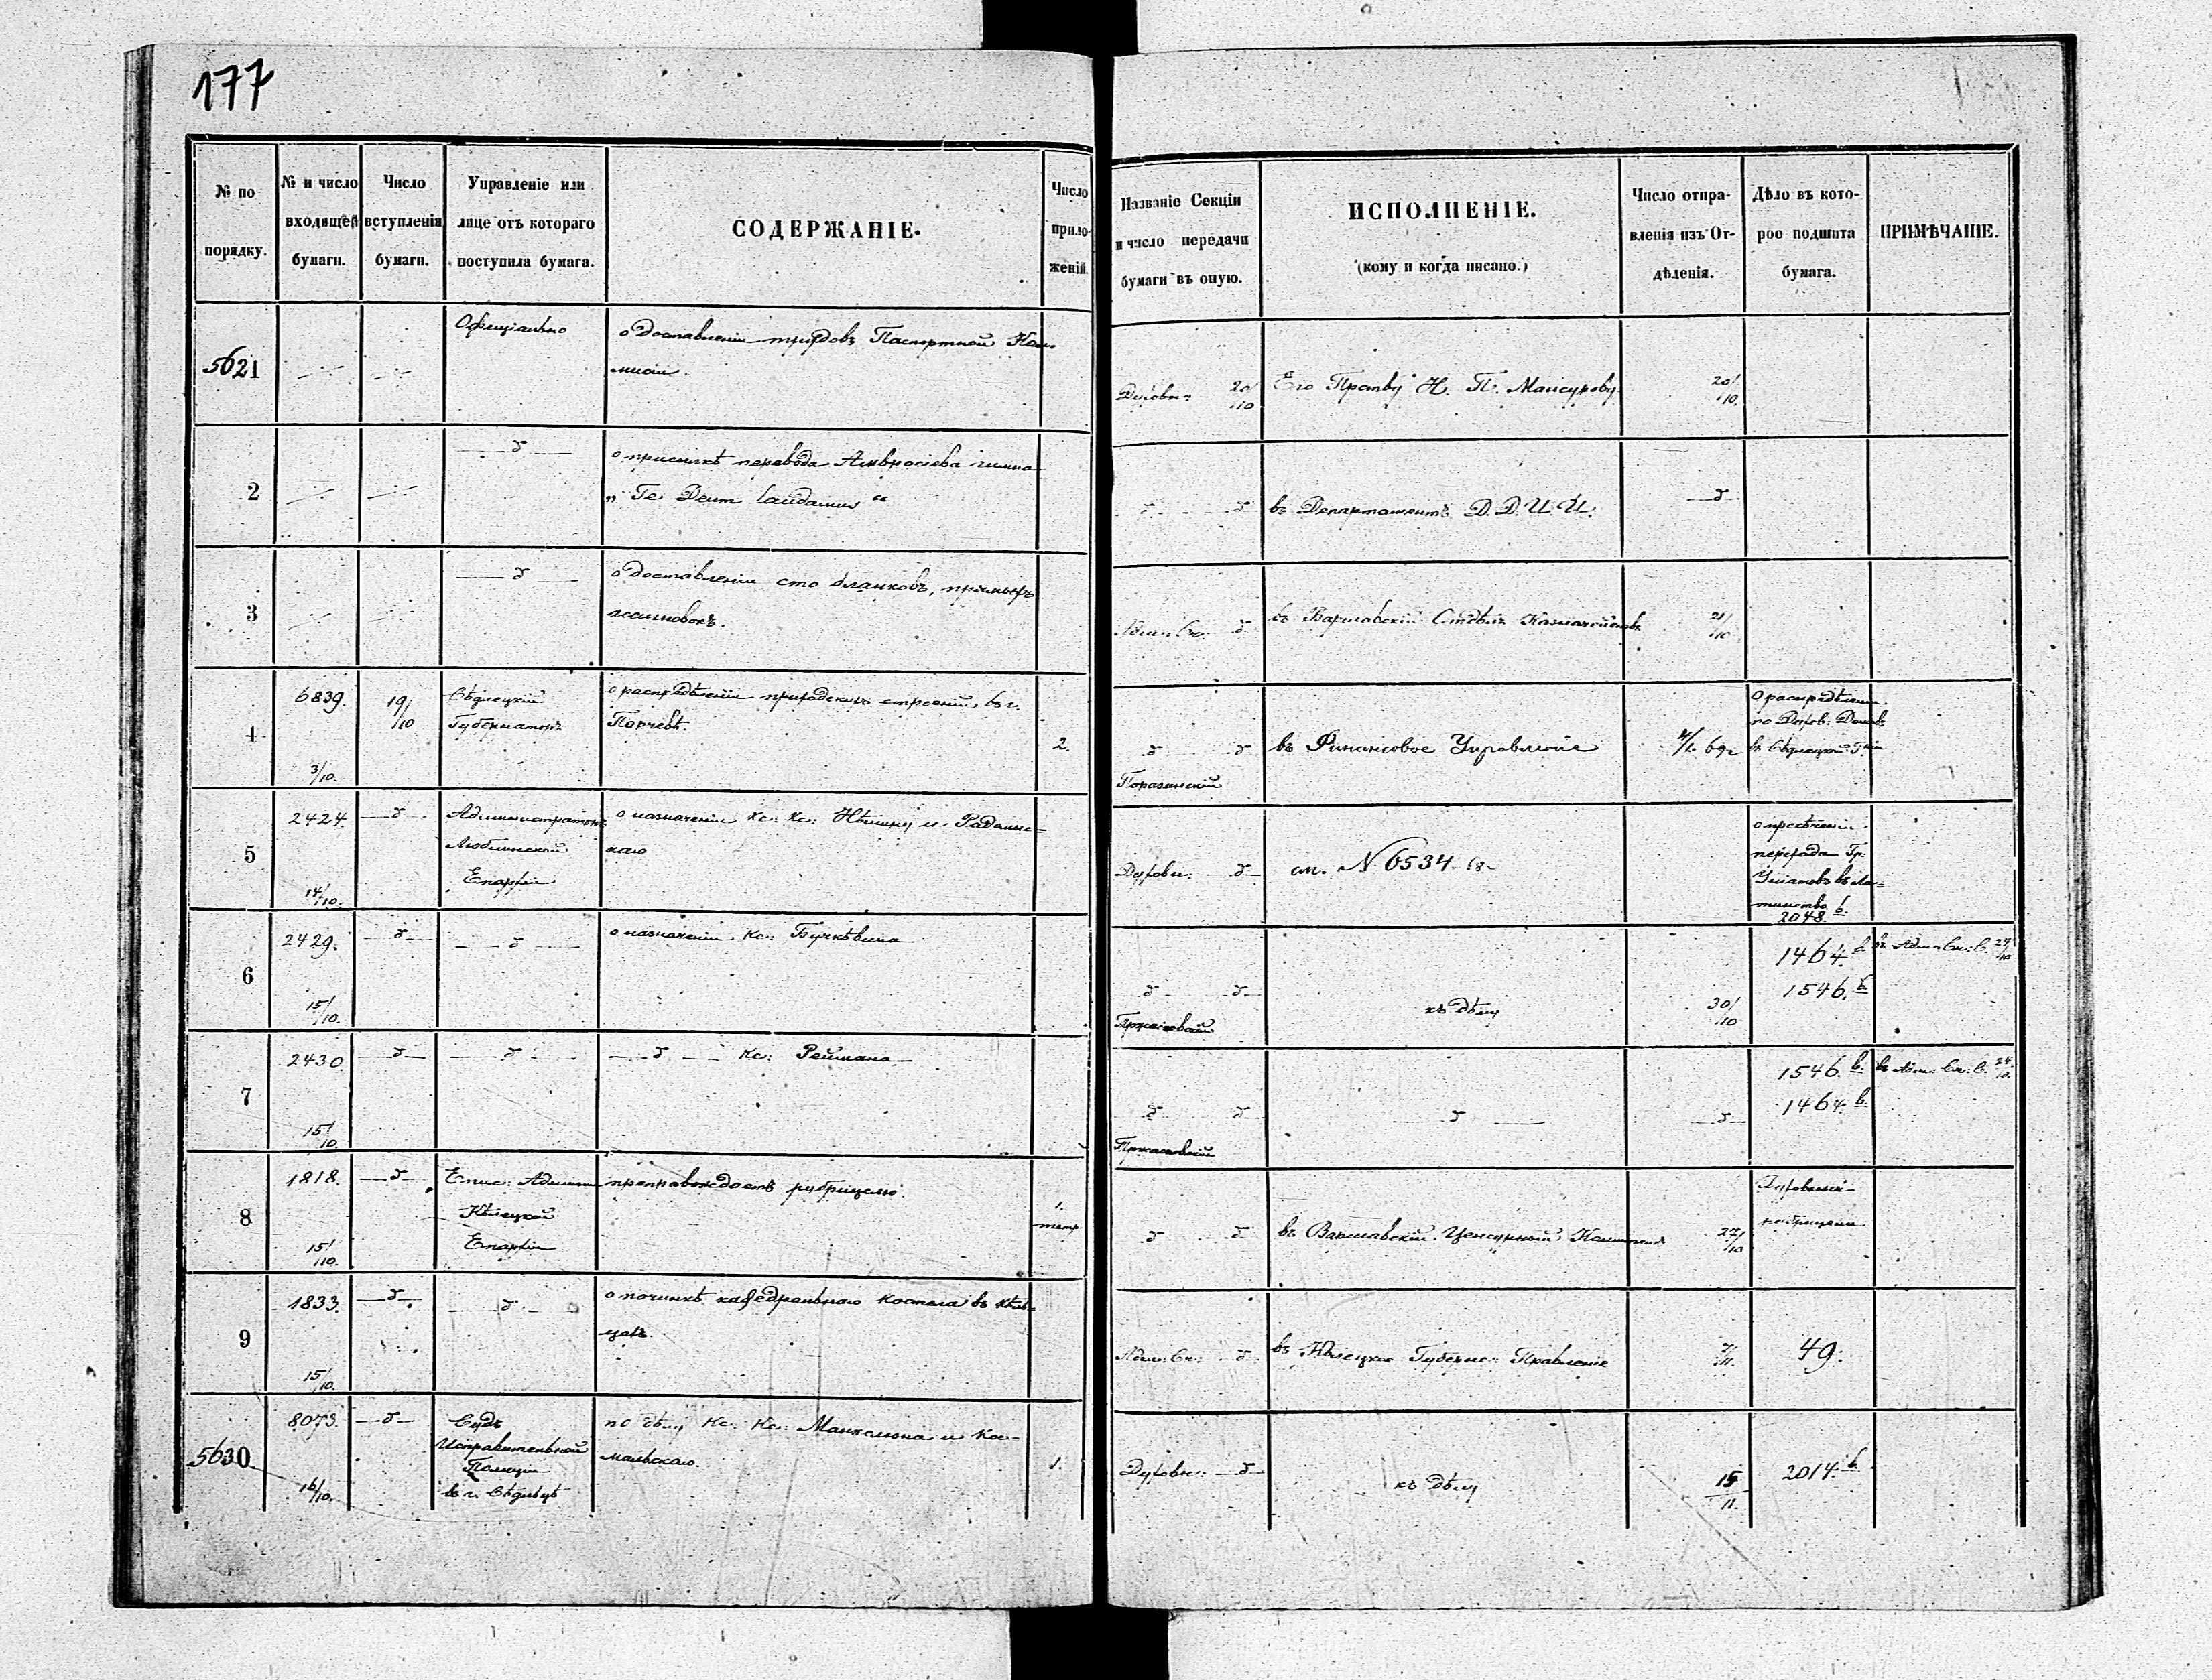 177
№ по порядку.
№ и число входящей бумаги.
Число вступленія бумаги.
Управленіе или лице отъ котораго поступила бумага.
СОДЕРЖАНІЕ.
Число приложеній.
Названіе Секціи и число передачи бумаги въ оную.
ИСПОЛНЕНІЕ.
(кому и когда писано.)
Число отправленія изъ Отдѣленія.
Дѣло въ которое подшита бумага.
ПРИМѢЧАНІЕ.
5621
Офиціально
о доставленіи трудовъ Паспортной Ком-
мисіи.
Духовн:
20/10
Его Пр-ству Н. П. Мансурову
20/10.
2
о присылкѣ перевода Амвросіева гимна
„Te Deum laudamus“
въ Департаментъ Д. Д. И. И.
3
о доставленіи сто бланковъ,
ассигновокъ.
въ Варшавскій Казначейства
21/10
4
6839.
3/10.
19/10
Сѣдлецкій
Губернаторъ
о распредѣленіи строеній, въ г.
Парчевѣ.
2.
въ Финансовое Управленіе
69 г
О распредѣленіи
по Духов: Домовъ
въ Сѣдлецкой Г-ніи
5
2424.
14/10.
Администраторъ
Люблинской
Епархіи
о назначеніи Кс: Кс: и Радомис=
каго
Духовн:
см. № 6534
о пресѣченіи
перехода Гр:
Уніатовъ въ Ла=
тинство
2048. в.
6
2429.
15/10.
о назначеніи Кс: Бучкѣвича
къ дѣлу
30/10
1464. в.
1546. в.
въ Адм: Ск: С. 24/10
7
2430
15/10.
Кс: Реймана
1546. в.
1464. в.
въ Адм: Ск: С. 24/10.
8
1818.
15/10.
Епис: Админи
Кѣлецкой
Епархіи
препровождаетъ рубрицелю.
1.
тетр
въ Варшавскій Цензурный Комитетъ
27/10
Духовныя
рубрицели
9
1833.
15/10.
о починкѣ каѳедральнаго костела въ Кѣль=
цахъ.
Адм: Ск:
въ Кѣлецкое Губернс: Правленіе
7/11.
49.
5630
8073.
16/10.
Судъ
Исправительной
Полиціи
въ г. Сѣдльцѣ
по дѣлу Кс: Кс: и Кос-
мальскаго.
1.
Духовн:
къ дѣлу
15/11.
2014. в.